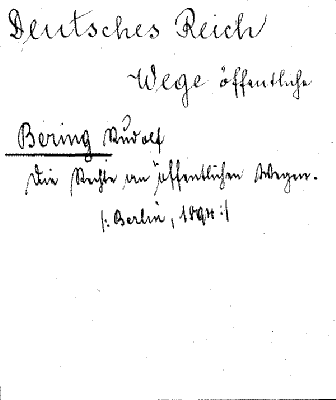 Deutsches Reich
Wege öffentliche
Bering Rudolf
Die Rechte an öffentlichen Wegen.
/: Berlin, 1894 :/